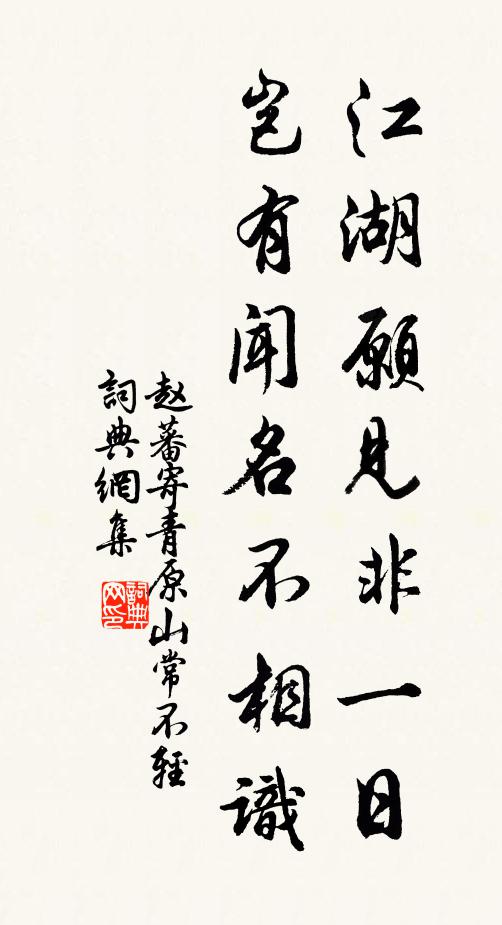 江湖願見非一日
豈有聞名不相識
赵蕃寄青原山常不輕
詞典網集
詞典网印